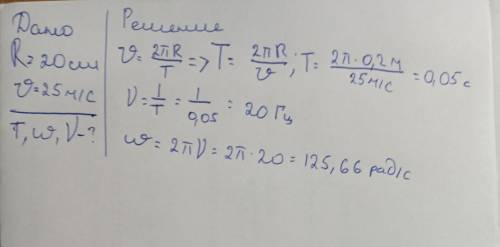 Дано
R = 20 см
υ = 25 м/с
T, ω, ν - ?
Решение
υ = 2πR/T => T = 2πR/υ ; T = 2π·0,2м/25 м/с = 0,05 с
ν = 1/T = 1/0,05 = 20 Гц
ω = 2πν = 2π·20 = 125,66 рад/с